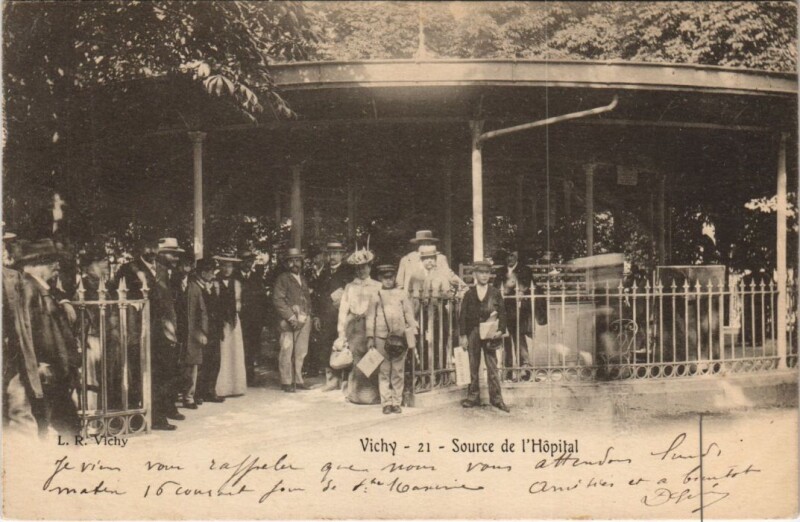 L. R. Vichy
Vichy - 21 - Source de l'Hôpital
Je viens vous rappeler que nous vous attendons lundi
matin 16 courant jour de Ste Amitiés et à bientôt